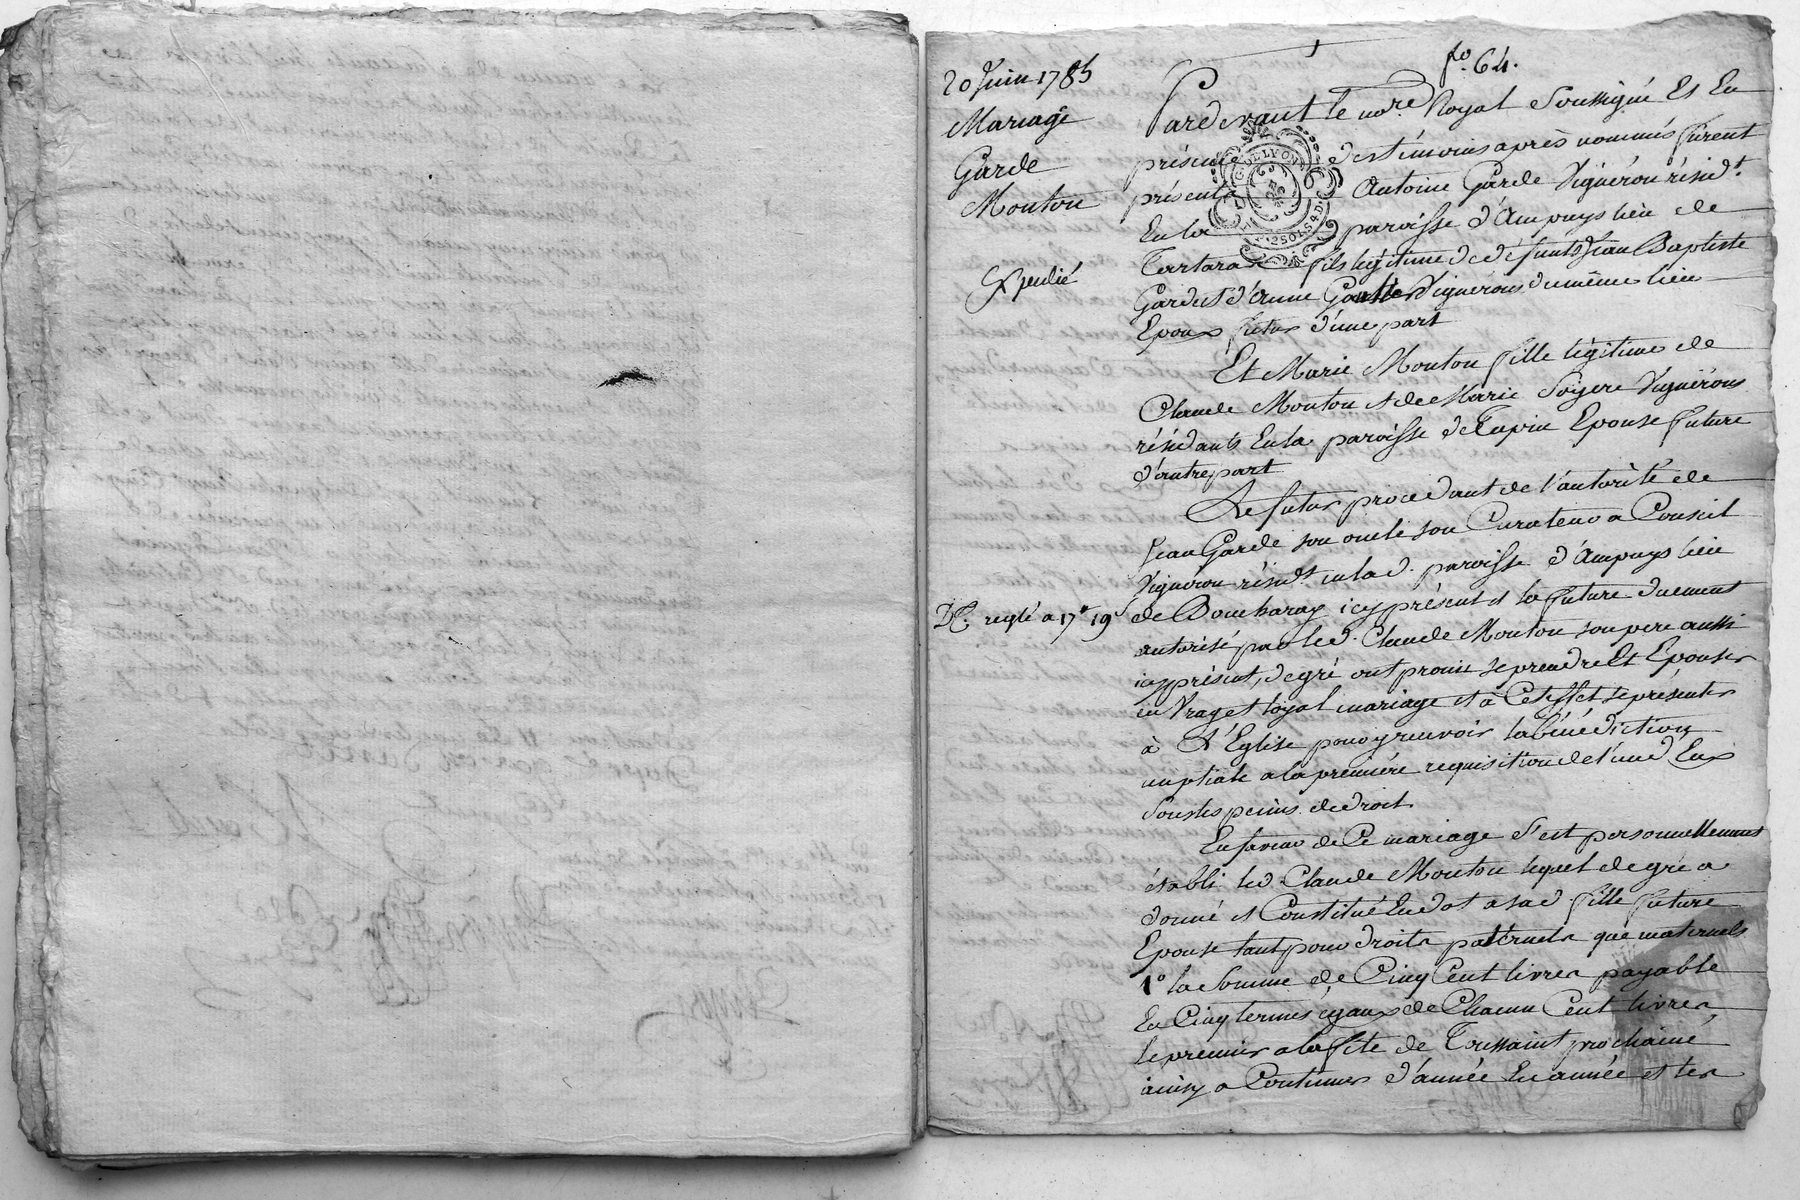 fo. 64.
20 Juin 1785
Mariage
Garde
Mouton
Expedié
Dt. reglé a 17# 19s
Pardevant le nore. Royal Soussigné Et En
présence des témoins après nommés furent
présents Antoine Garde Vigneron résidt.
En la paroisse d'Ampuys lieu de
Tartaras fils légitime de défunts Jean Baptiste
Garde et d'anne Vignerons du même lieu
Epoux futur d'une part
Et Marie Mouton fille légitime de
Claude Mouton et de Marie Soyere Vignérons
résidants En la paroisse de Tupin Epouse future
d'autre part
Le futur procedant de l'autorité de
Jean Garde son oncle son Curateur a Conseil
Vigneron résidt en lad. paroisse d'Ampuys lieu
de Boucharay icy présent et la future duement
autorisé par led. Claude Mouton son pere aussi
icy présent, de gré ont promis se prendre Et Epouser
en Vray et loyal mariage et à Cet effet se présenter
à L'Eglise pour y recevoir la bénédiction
nuptiale a la première requisition de l'un d'Eux
Sous les peines de droit
En faveur de Ce mariage S'est personnellement
établi led. Claude Mouton lequel de gré a
donné et Constitué En dot a sad. fille future
Epouse tant pour droits paternels que maternels
1o. la Somme de Cinq Cent livres payable
En Cinq termes égaux de Chacun Cent livres,
le premier a la fête de Toussaint prochaine,
ainsy a Continuer d'année En année et les
G. DE LYON
2 SOLS 4 D.